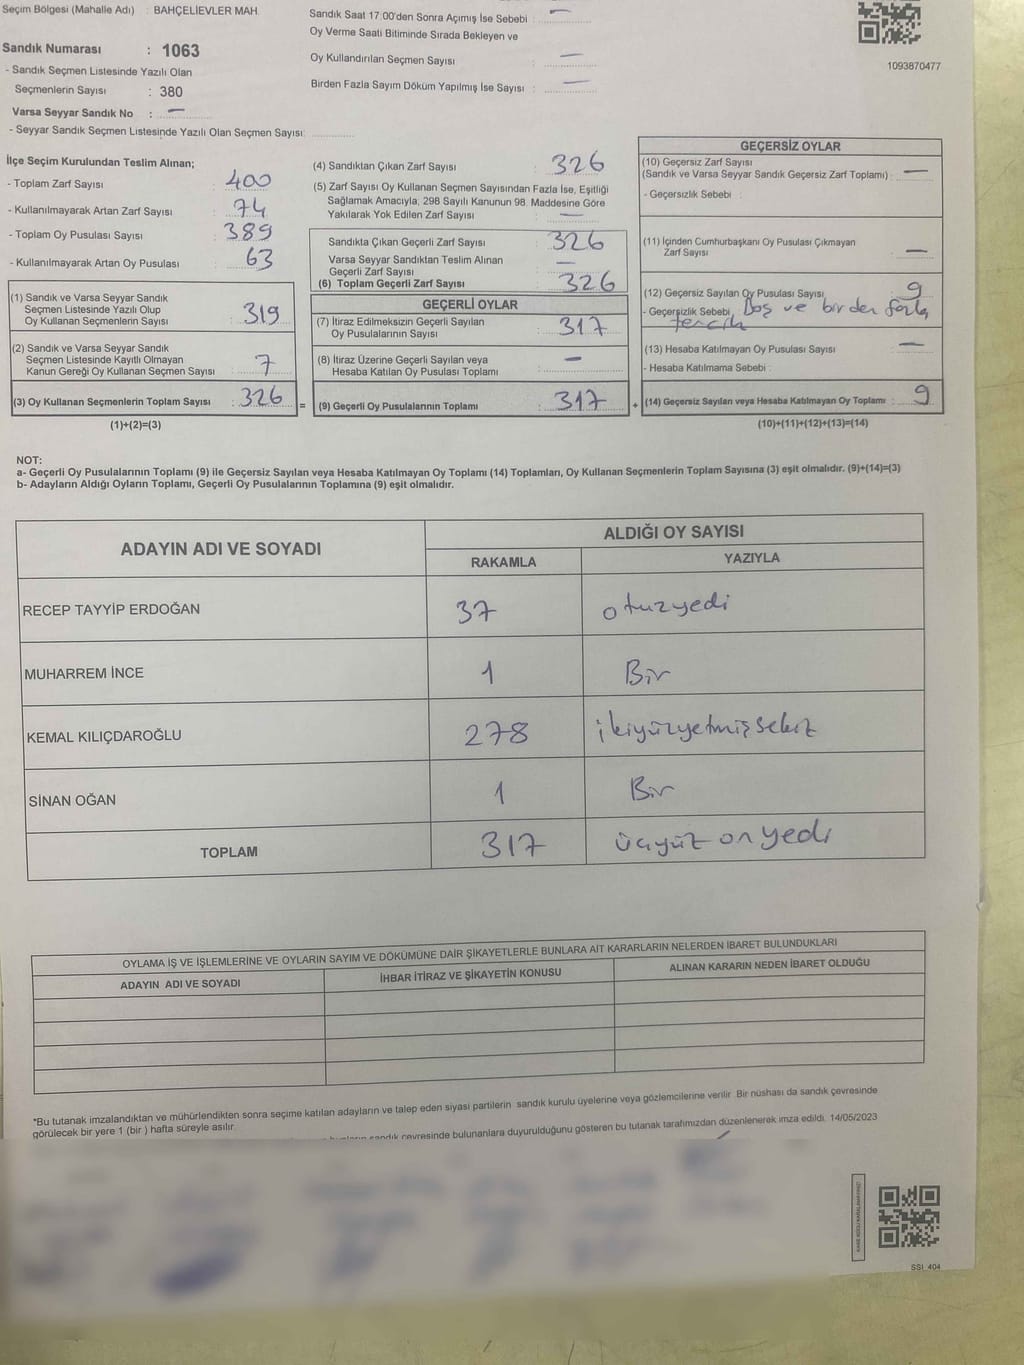 Seçim Bölgesi (Mahalle Adı) : BAHÇELİEVLER MAH.
Sandık Numarası : 1063
- Sandık Seçmen Listesinde Yazılı Olan
Seçmenlerin Sayısı : 380
Varsa Seyyar Sandık No : —
- Seyyar Sandık Seçmen Listesinde Yazılı Olan Seçmen Sayısı:
Sandık Saat 17:00'den Sonra Açımış İse Sebebi : —
Oy Verme Saati Bitiminde Sırada Bekleyen ve
Oy Kullandırılan Seçmen Sayısı —
Birden Fazla Sayım Döküm Yapılmış İse Sayısı : —
1093870477
İlçe Seçim Kurulundan Teslim Alınan;
- Toplam Zarf Sayısı : 400
- Kullanılmayarak Artan Zarf Sayısı : 74
- Toplam Oy Pusulası Sayısı : 389
- Kullanılmayarak Artan Oy Pusulası : 63
(1) Sandık ve Varsa Seyyar Sandık
Seçmen Listesinde Yazılı Olup
Oy Kullanan Seçmenlerin Sayısı : 319
(2) Sandık ve Varsa Seyyar Sandık
Seçmen Listesinde Kayıtlı Olmayan
Kanun Gereği Oy Kullanan Seçmen Sayısı : 7
(3) Oy Kullanan Seçmenlerin Toplam Sayısı : 326
(1)+(2)=(3)
=
(4) Sandıktan Çıkan Zarf Sayısı : 326
(5) Zarf Sayısı Oy Kullanan Seçmen Sayısından Fazla İse, Eşitliği
Sağlamak Amacıyla, 298 Sayılı Kanunun 98. Maddesine Göre
Yakılarak Yok Edilen Zarf Sayısı : —
Sandıkta Çıkan Geçerli Zarf Sayısı : 326
Varsa Seyyar Sandıktan Teslim Alınan
Geçerli Zarf Sayısı : —
(6) Toplam Geçerli Zarf Sayısı : 326
GEÇERLİ OYLAR
(7) İtiraz Edilmeksizin Geçerli Sayılan
Oy Pusulalarının Sayısı : 317
(8) İtiraz Üzerine Geçerli Sayılan veya
Hesaba Katılan Oy Pusulası Toplamı : —
(9) Geçerli Oy Pusulalarının Toplamı : 317
+
GEÇERSİZ OYLAR
(10) Geçersiz Zarf Sayısı
(Sandık ve Varsa Seyyar Sandık Geçersiz Zarf Toplamı) : —
- Geçersizlik Sebebi :
(11) İçinden Cumhurbaşkanı Oy Pusulası Çıkmayan
Zarf Sayısı : —
(12) Geçersiz Sayılan Oy Pusulası Sayısı : 9
- Geçersizlik Sebebi Boş ve birden fazla
tercih
(13) Hesaba Katılmayan Oy Pusulası Sayısı : —
- Hesaba Katılmama Sebebi :
(14) Geçersiz Sayılan veya Hesaba Katılmayan Oy Toplamı : 9
(10)+(11)+(12)+(13)=(14)
NOT:
a- Geçerli Oy Pusulalarının Toplamı (9) ile Geçersiz Sayılan veya Hesaba Katılmayan Oy Toplamı (14) Toplamları, Oy Kullanan Seçmenlerin Toplam Sayısına (3) eşit olmalıdır. (9)+(14)=(3)
b- Adayların Aldığı Oyların Toplamı, Geçerli Oy Pusulalarının Toplamına (9) eşit olmalıdır.
ADAYIN ADI VE SOYADI ALDIĞI OY SAYISI
RAKAMLA YAZIYLA
RECEP TAYYİP ERDOĞAN 37 otuzyedi
MUHARREM İNCE 1 Bir
KEMAL KILIÇDAROĞLU 278 ikiyüzyetmişsekiz
SİNAN OĞAN 1 Bir
TOPLAM 317 üçyüz onyedi
OYLAMA İŞ VE İŞLEMLERİNE VE OYLARIN SAYIM VE DÖKÜMÜNE DAİR ŞİKAYETLERLE BUNLARA AİT KARARLARIN NELERDEN İBARET BULUNDUKLARI
ADAYIN ADI VE SOYADI İHBAR İTİRAZ VE ŞİKAYETİN KONUSU ALINAN KARARIN NEDEN İBARET OLDUĞU
*Bu tutanak imzalandıktan ve mühürlendikten sonra seçime katılan adayların ve talep eden siyasi partilerin sandık kurulu üyelerine veya gözlemcilerine verilir. Bir nüshası da sandık çevresinde
görülecek bir yere 1 (bir ) hafta süreyle asılır.
sandık çevresinde bulunanlara duyurulduğunu gösteren bu tutanak tarafımızdan düzenlenerek imza edildi. 14/05/2023
SSI_404